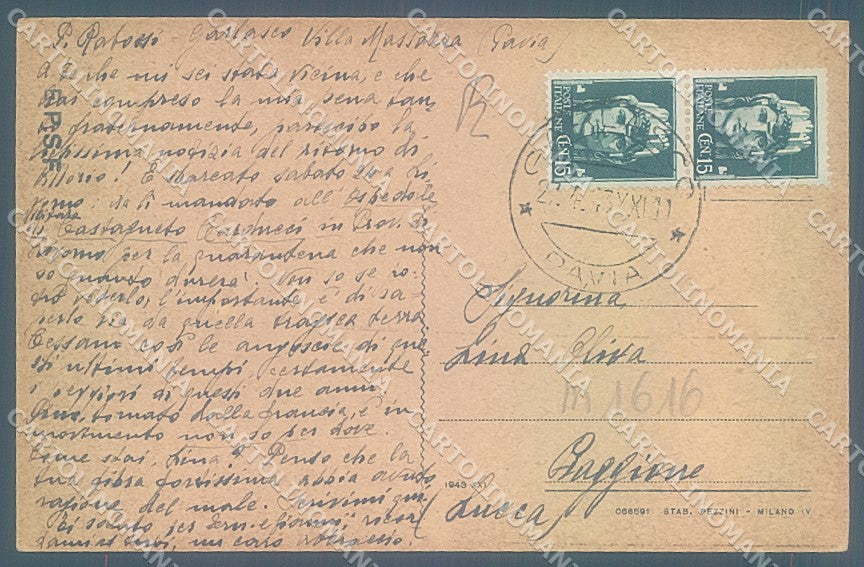 P. Rabossi - Garlasco Villa Massazza (Pavia)
A te che mi sei stata vicina, e che
hai compreso la mia pena tan
to fraternamente, partecipo la
bellissima notizia del ritorno di
Vittorio! È sbarcato sabato
da lì mandato all'Ospedale
militare
di Castagneto Carducci in Prov. di
Livorno per la quarantena che non
so quanto durerà. Non so se po-
trò vederlo, l'importante è di sa-
perlo via da quella tragica terra.
Cessano così le angoscie di que-
sti ultimi tempi, certamente
i peggiori di questi due anni.
tornato dalla Francia, è in
movimento non so per dove.
Come stai, Lina? Penso che la
tua fibra fortissima abbia avuto
ragione del male. Scrivimi qui.
Ti saluto
un caro abbraccio.
VERSE
POSTE ITALIANE
CEN. 15
POSTE ITALIANE
CEN. 15
PAVIA
Signorina
Lina Oliva
m 1616
Paggione
(Lucca)
1943 XXI
066591 STAB. PEZZINI - MILANO IV
CARTOLINOMANIA